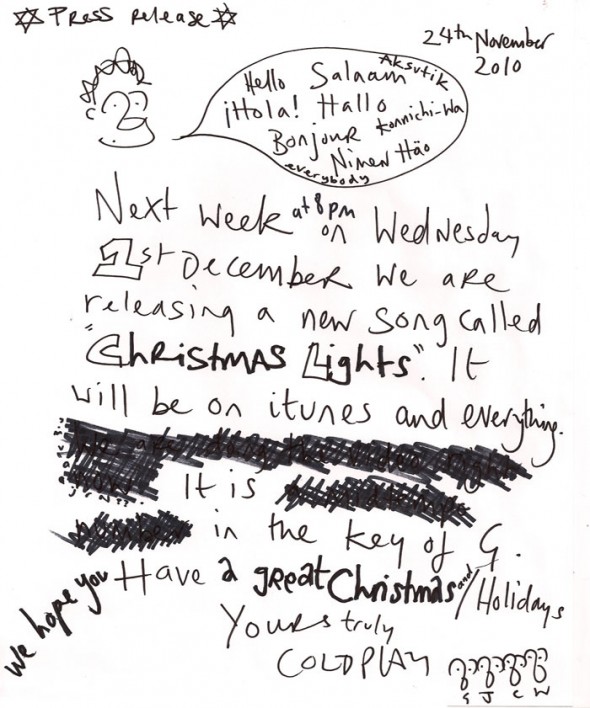 Press release
24th November
2010
Hello Salaam Aksutik
¡Hola! Hallo
Bonjour Konnichi-wa
Nimen Hāo
everybody
Next week at 8pm on Wednesday
1st December we are
releasing a new song called
"Christmas Lights". It
will be on itunes and everything.
It is
in the key of G.
We hope you Have a great Christmas and/Holidays
Yours truly
COLDPLAY
G J C W